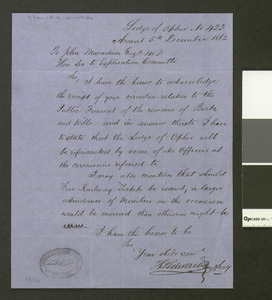 Lodge of Ophir No 423
Ararat 5th December 1862
To John Macadam Esqr M.D.
Hon Sec to Exploration Committee
Sir,
I have the honor to acknowledge
the receipt of your circular relative to the
Public Funeral of the remains of Burke
and Wills and in answer thereto I have
to state that the Lodge of Ophir will
be represented by some of its Officers at
the ceremonies referred to.
I may also mention that should
Free Railway Tickets be issued, a larger
attendance of Members on the occasion
would be ensured than otherwise might be
I have the honor to be
Sir
Your obdt servt
Secy